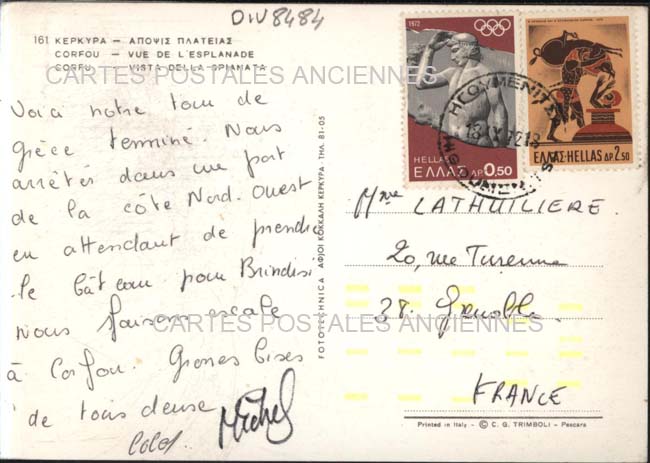 DIV8484
161 ΚΕΡΚΥΡΑ — ΑΠΟΨΙΣ ΠΛΑΤΕΙΑΣ
CORFOU — VUE DE L'ESPLANADE
CORFU — VISTA DELLA SPIANATA
CARTES POSTALES ANCIENNES
Voici notre tour de
Grèce terminé. Nous
arrêtés dans un port
de la côte Nord-Ouest
en attendant de prendre
le bâteau pour Brindisi
Nous faisons escale
à Corfou. Grosses bises
de tous deux
Michel
FOTOTECHNICA ΑΦΟΙ ΚΟΚΚΑΛΗ ΚΕΡΚΥΡΑ - ΤΗΛ. 81-05
1972
HELLAS
ΕΛΛΑΣ ΔΡ 0,50
ΕΛΛΑΣ-HELLAS ΔΡ 2.50
ΗΓΟΥΜΕΝΙΤΣΑ
Mme LATHUILIERE
20, rue Turenne
38. Grenoble
CARTES POSTALES ANCIENNES
FRANCE
Printed in Italy - © C. G. TRIMBOLI - Pescara